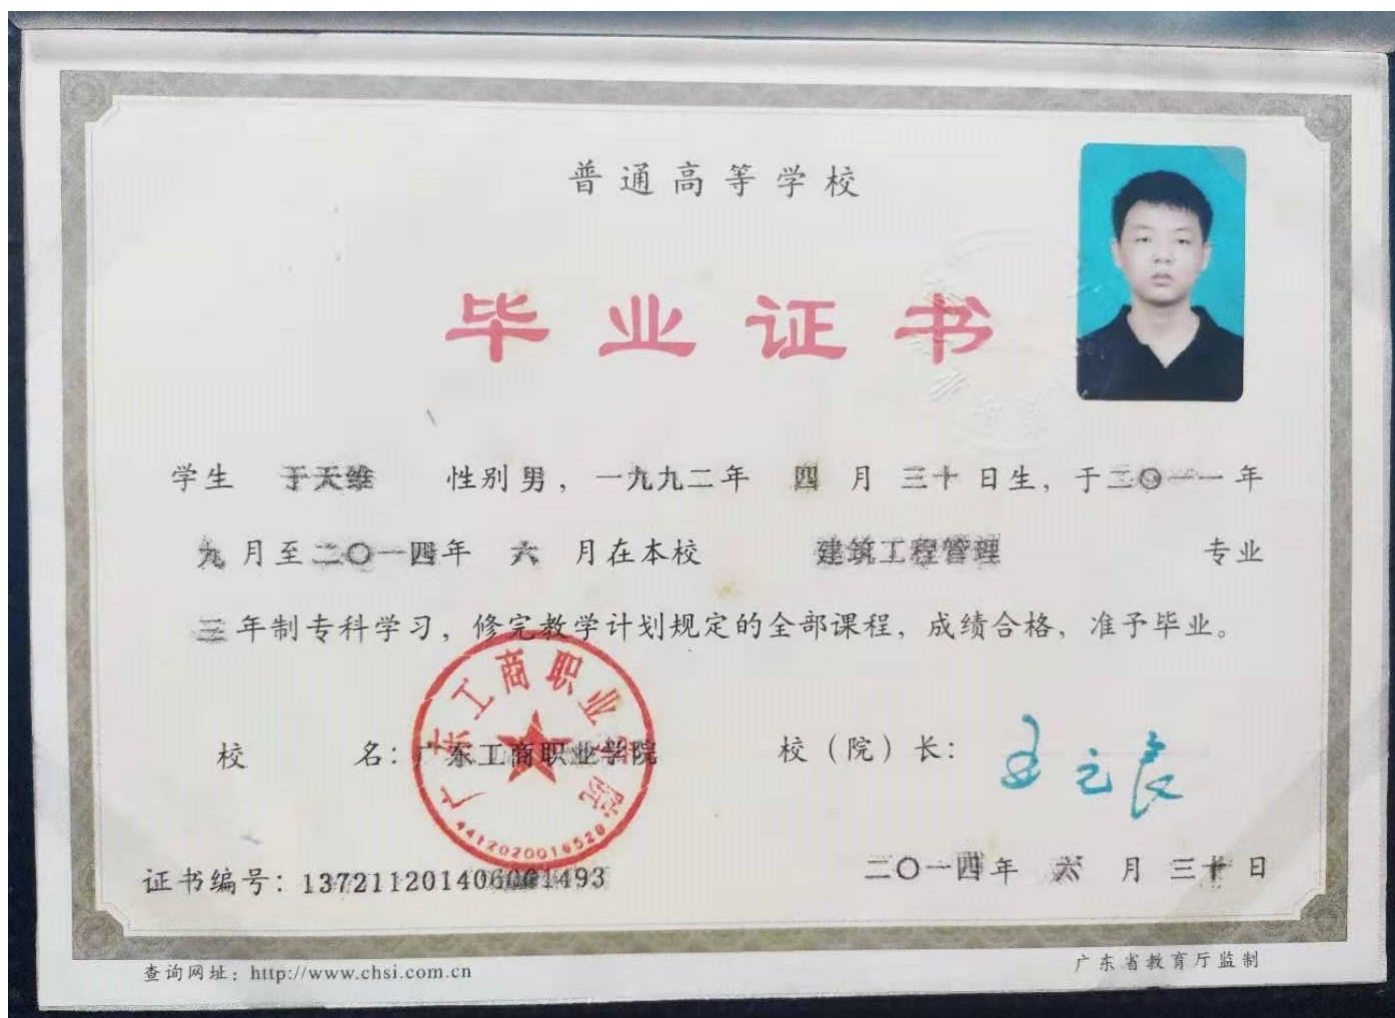 普通高等学校
毕业证书
学生 于天维 性别 男，一九九二年 四 月 三十 日生，于二〇一一年
九 月至二〇一四年 六 月在本校 建筑工程管理 专业
三 年制专科学习，修完教学计划规定的全部课程，成绩合格，准予毕业。
广东工商职业学院
4412020016520
校 名：广东工商职业学院 校（院）长：
证书编号：137211201406001493 二〇一四年 六 月 三十 日
查询网址：http://www.chsi.com.cn 广东省教育厅监制